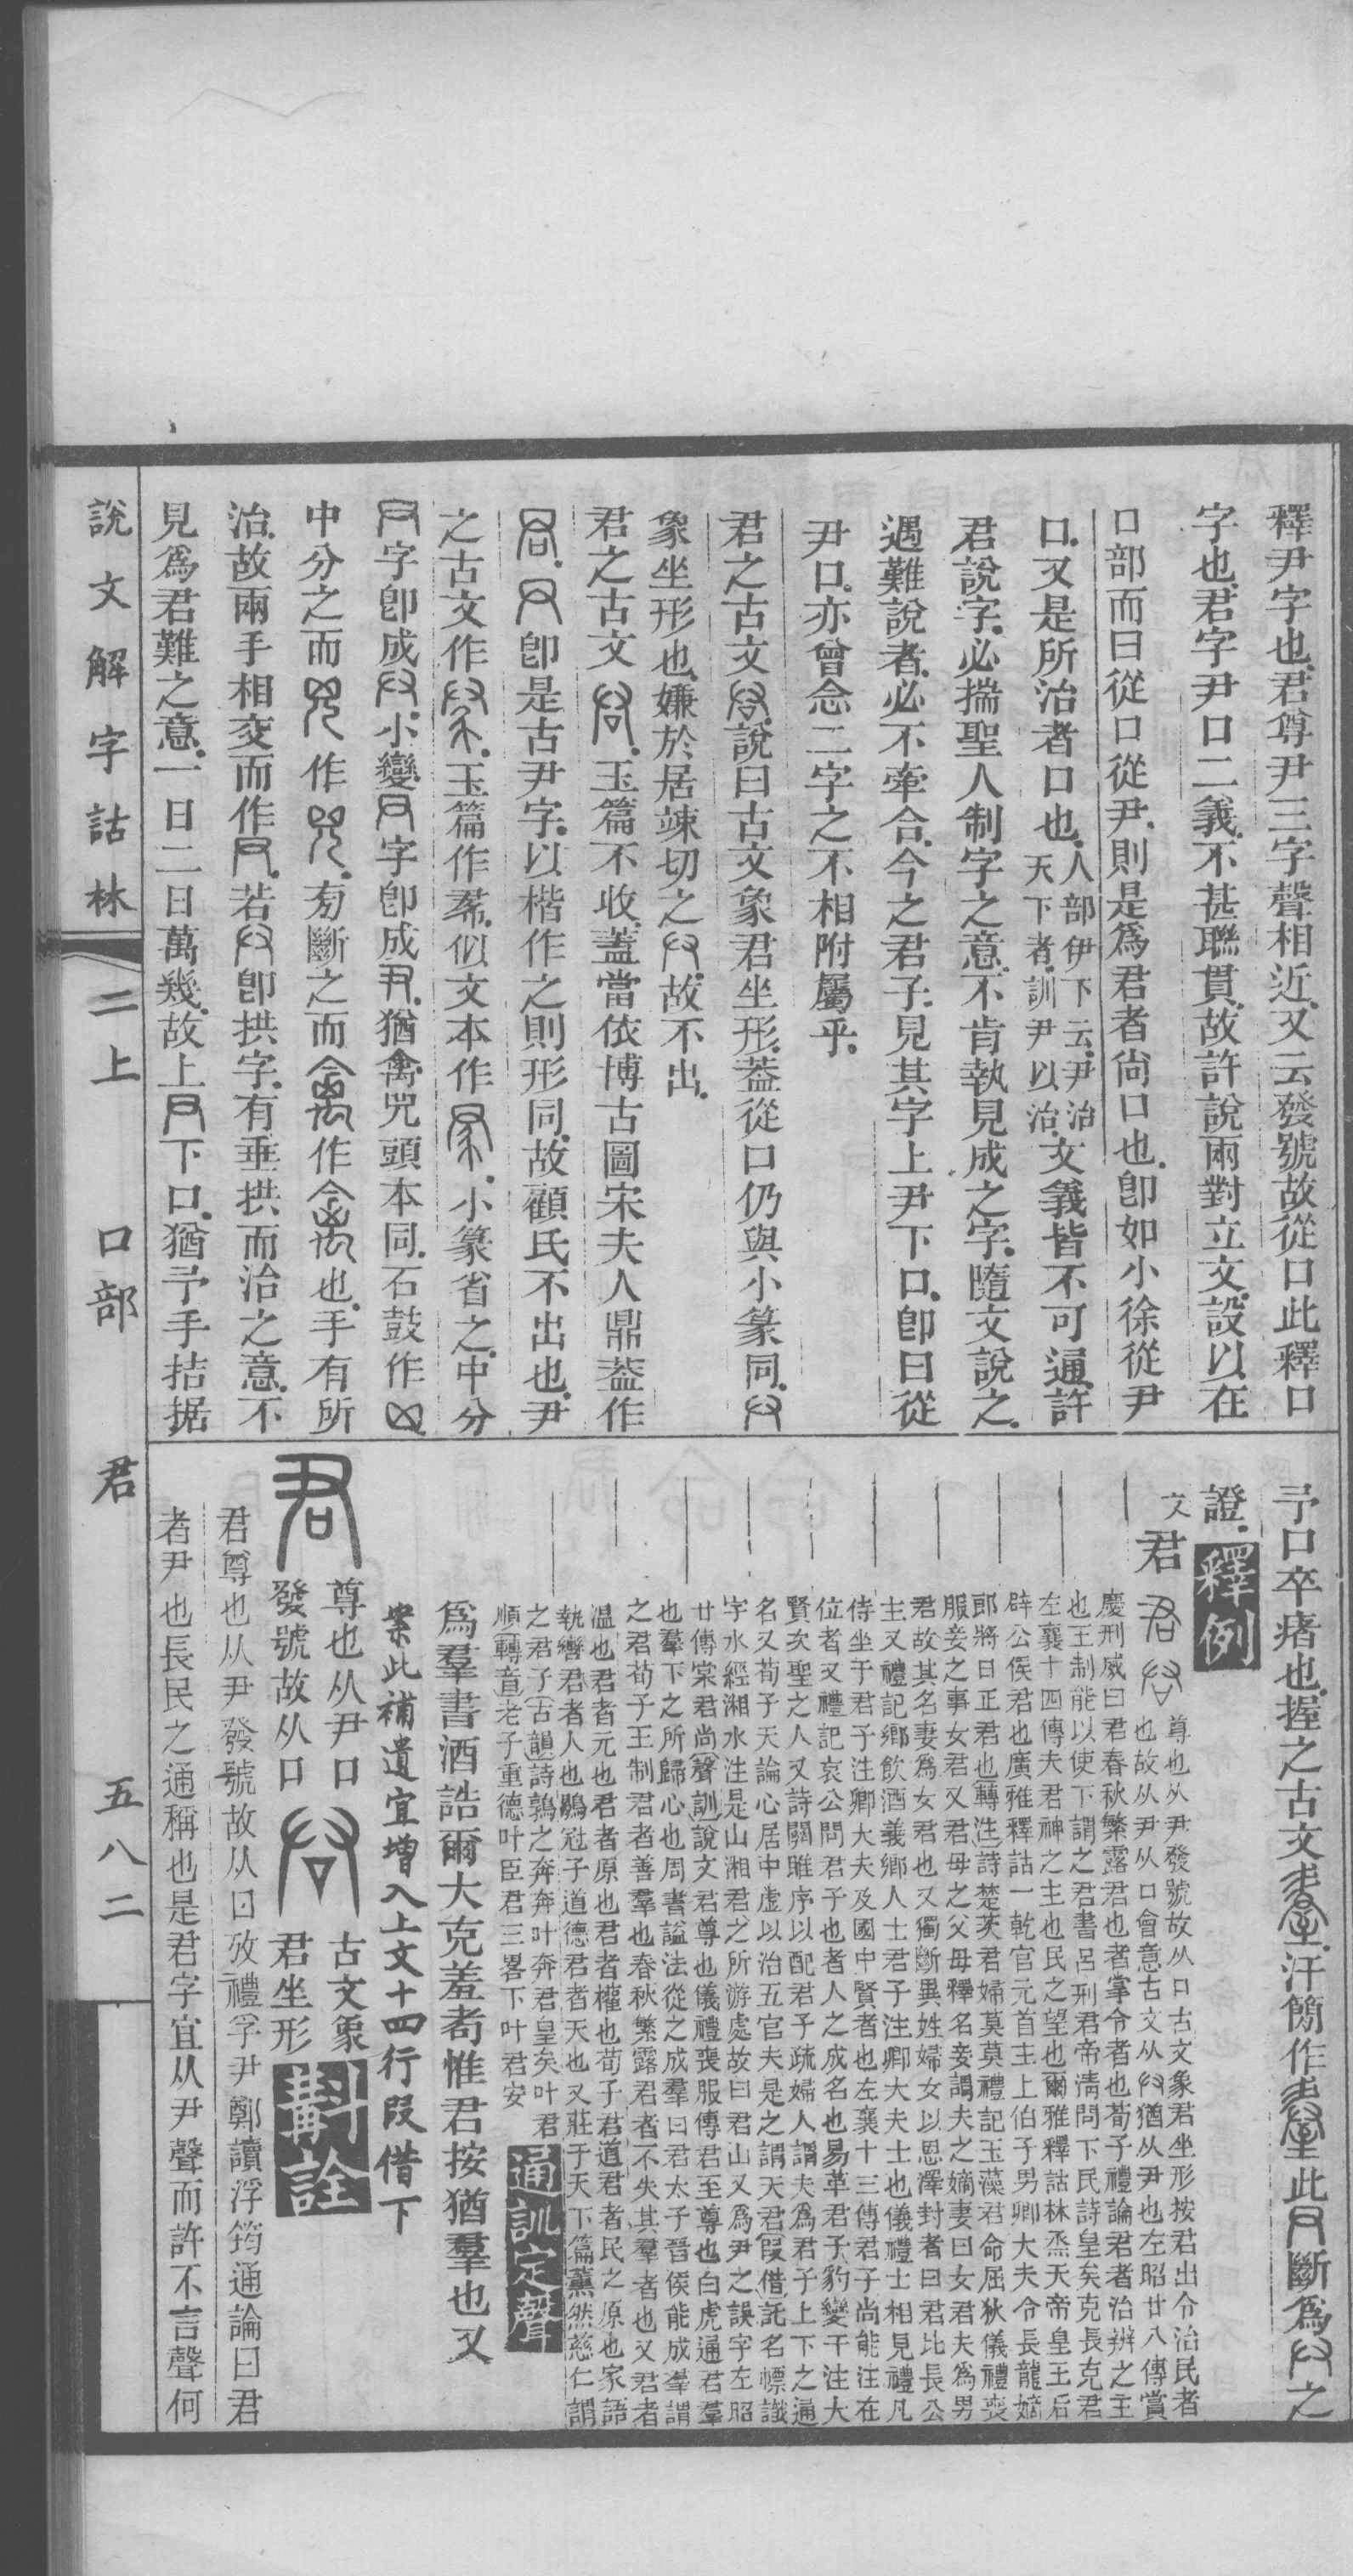 釋尹字也君尊尹三字聲相近又云發號故從口此釋口
字也君字尹口二義不甚聯貫故許說兩對立文設以在
口部而曰從口從尹則是爲君者尙口也卽如小徐從尹
口又是所治者口也人部伊下云尹治天下者訓尹以治文義皆不可通許
君說字必揣聖人制字之意不肯執見成之字隨文說之
遇難說者必不牽合今之君子見其字上尹下口卽曰從
尹口亦曾念二字之不相附屬乎
君之古文說曰古文象君坐形葢從口仍與小篆同
象坐形也嫌於居竦切之故不出
君之古文玉篇不收葢當依博古圖宋夫人鼎葢作
卽是古尹字以楷作之則形同故顧氏不出也尹
之古文作玉篇作似文本作小篆省之中分
字卽成小變字卽成猶禽兕頭本同石鼓作
中分之而作有斷之而作也手有所
治故兩手相交而作若卽拱字有垂拱而治之意不
見爲君難之意一日二日萬幾故上下口猶予手拮据
予口卒瘏也握之古文汗簡作此斷爲之
證釋例
文君尊也从尹發號故从口古文象君坐形按君出令治民者
也故从尹从口會意古文从猶从尹也左昭廿八傳賞
慶刑威曰君春秋繁露君也者掌令者也荀子禮論君者治辨之主
也王制能以使下謂之君書呂刑君帝淸問下民詩皇矣克長克君
左襄十四傳夫君神之主也民之望也爾雅釋詁林烝天帝皇王后
辟公侯君也廣雅釋詁一乾官元首主上伯子男卿大夫令長龍嫡
郎將日正君也轉注詩楚茨君婦莫莫禮記玉藻君命屈狄儀禮喪
服妾之事女君又君母之父母釋名妾謂夫之嫡妻曰女君夫爲男
君故其名妻爲女君也又獨斷異姓婦女以恩澤封者曰君比長公
主又禮記鄉飲酒義鄉人士君子注卿大夫士也儀禮士相見禮凡
侍坐于君子注卿大夫及國中賢者也左襄十三傳君子尙能注在
位者又禮記哀公問君子也者人之成名也易革君子豹變干注大
賢次聖之人又詩關雎序以配君子疏婦人謂夫爲君子上下之通
名又荀子天論心居中虛以治五官夫是之謂天君假借託名幖識
字水經湘水注是山湘君之所游處故曰君山又爲尹之誤字左昭
廿傳棠君尙聲訓說文君尊也儀禮喪服傳君至尊也白虎通君羣
也羣下之所歸心也周書謚法從之成羣曰君太子晉侯能成羣謂
之君荀子王制君者善羣也春秋繁露君者不失其羣者也又君者
溫也君者元也君者原也君者權也荀子君道君者民之原也家語
執轡君者人也鶡冠子道德君者天也又莊子天下篇薰然慈仁謂
之君子古韻詩鶉之奔奔叶奔君皇矣叶君
順轉音老子重德叶臣君三畧下叶君安通訓定聲
爲羣書酒誥爾大克羞耇惟君按猶羣也又
案此補遺宜增入上文十四行叚借下
君尊也从尹口發號故从口古文象君坐形斠詮
君尊也从尹發號故从口攷禮孚尹鄭讀浮筠通論曰君
者尹也長民之通稱也是君字宜从尹聲而許不言聲何
說文解字詁林 二上 口部 君 五八二